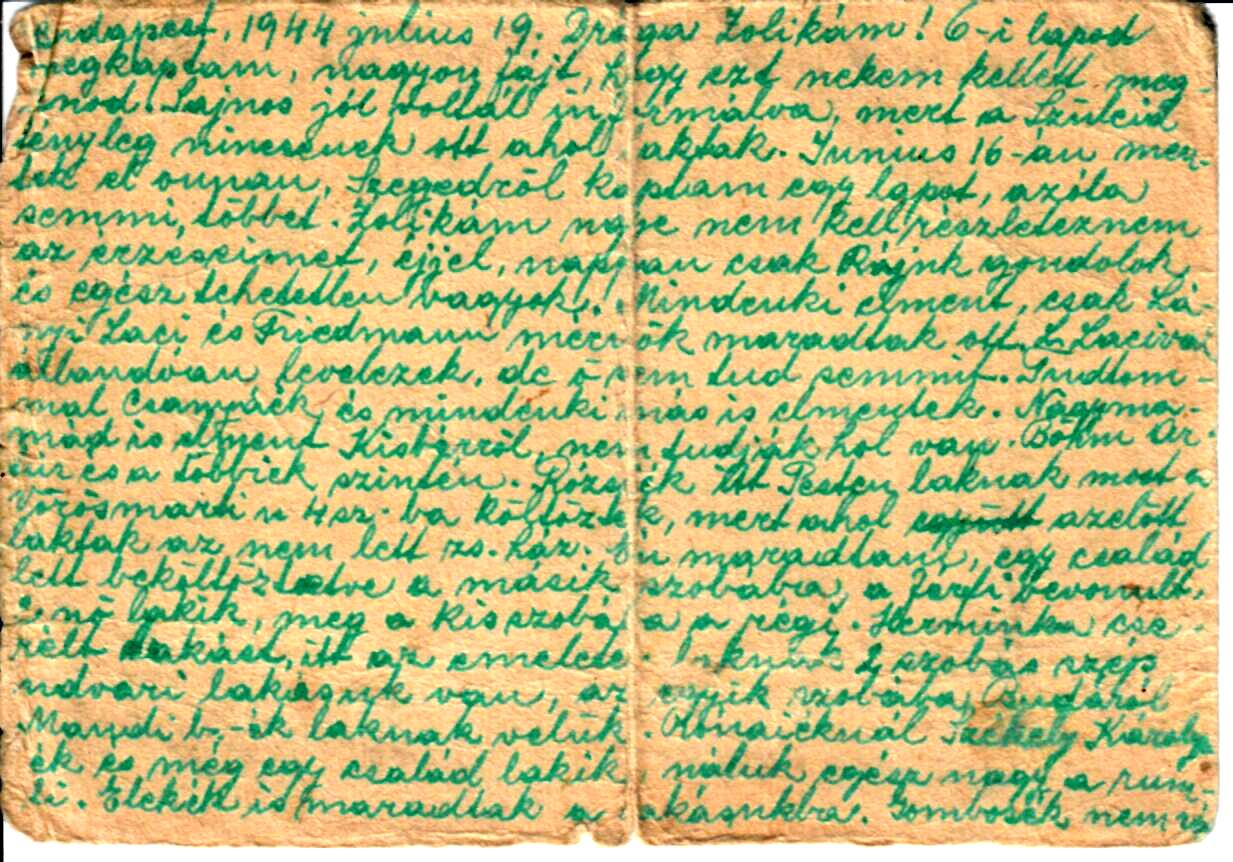 Budapest, 1944 július 19. Drága Zolikám! 6-i lapod
megkaptam, nagyon fájt, hogy ezt nekem kellett meg-
irnod. Sajnos jól voltál informálva, mert a Szüleid
tényleg nincsenek ott ahol laktak. Junius 16-án men-
tek el onnan, Szegedről kaptam egy lapot, azóta
semmi, többet. Zolikám ugye nem kell részleteznem
az érzéseimet, éjjel, nappal csak Rájuk gondolok,
és egész tehetetlen vagyok. Mindenki elment, csak Lá-
nyi Laci és Friedmann mérnök maradtak ott. L. Lacival
állandóan levelezek, de ő sem tud semmit. Tudtom-
mal és mindenki más is elmentek. Nagyma-
mád is elment Kisbérről, nem tudják hol van. Böhm Ar-
tur és a többiek szintén. Rózsiék itt Pesten laknak most a
Vörösmarti u 4 sz.-ba költöztek, mert ahol együtt azelőtt
laktak az nem lett zs. ház. Én maradtam, egy család
lett beköltöztetve a másik szobába, a férfi bevonult,
nő lakik, meg a kisszobába a régi. Herminka cse-
rélt lakást, itt az emeleten laknak 2 szobás szép
udvari lakásuk van, az egyik szobába Budáról
Mandi b.-ék laknak velük. Rónaiéknál Székely Károly-
ék és még egy család lakik, náluk egész nagy a rum-
li. Elekék is maradtak a lakásukba. Gombosék nem is